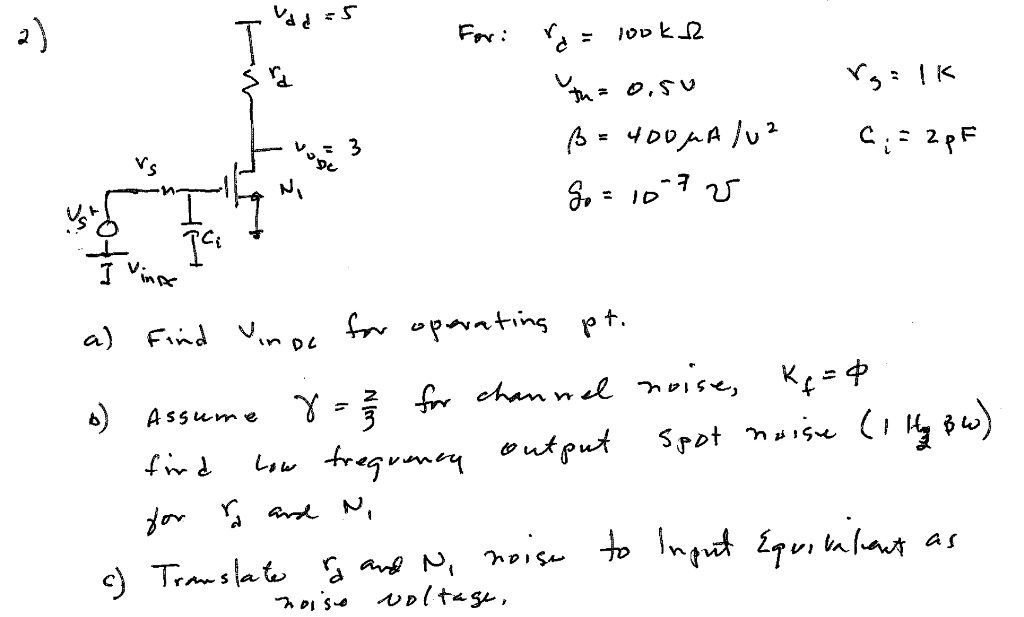 2)
Vdd = 5
For: rd = 100kΩ
rd
Vth = 0.5v
rs = 1K
VoDC = 3
β = 400μA/v²
Ci = 2pF
rs
N1
go = 10⁻⁷ ℧
Vs +
Ci
VinDC
a) Find VinDC for operating pt.
b) Assume γ = 2/3 for channel noise, Kf = φ
find Low frequency output spot noise (1 Hz BW)
for rd and N1
c) Translate rd and N1 noise to Input Equivalent as
noise voltage.